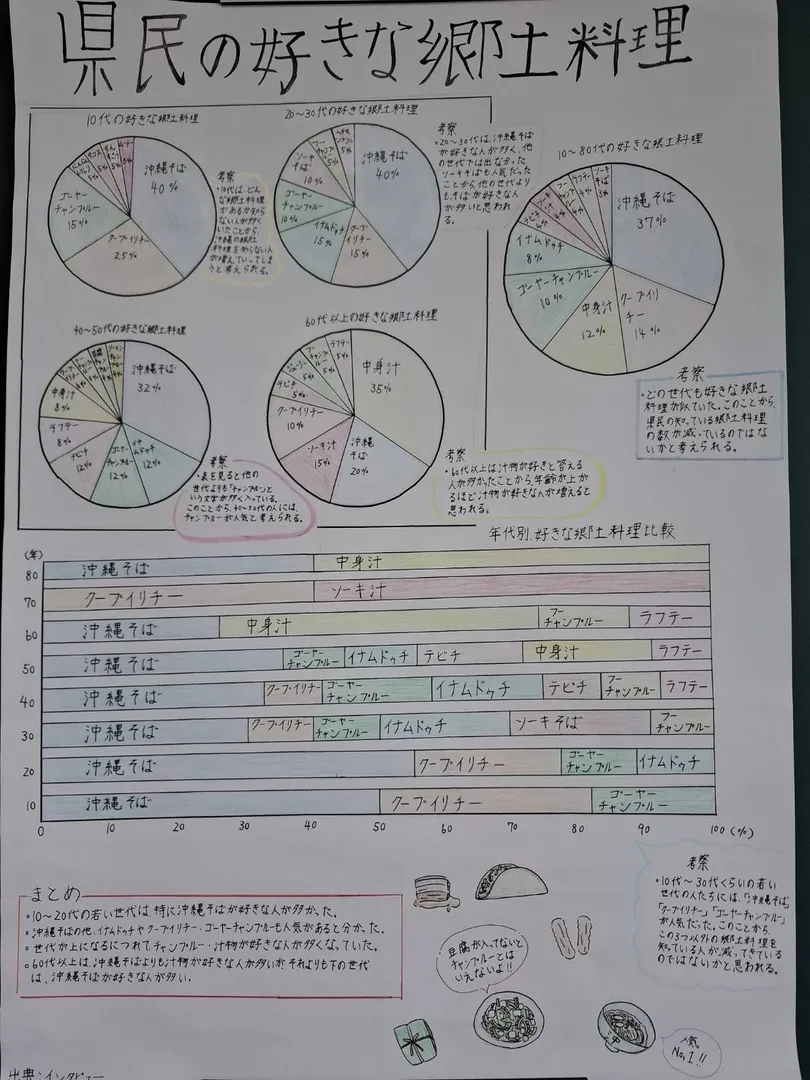 県民の好きな郷土料理
10代の好きな郷土料理
沖縄そば
40%
クーブイリチー
25%
ゴーヤー
チャンプルー
15%
5%
5%
5%
5%
考察
・10代は、どん
な郷土料理
があるか知ら
ない人が多く
いたことから、
沖縄の郷土
料理を知らない人
が増えていってしま
うと考えられる。
20〜30代の好きな郷土料理
沖縄そば
40%
クーブ
イリチー
15%
イナムドゥチ
15%
ゴーヤー
チャンプルー
10%
ソーキ
そば
10%
フー
チャンプルー
5%
5%
考察
・20〜30代は、沖縄そば
が好きな人が多く、他
の世代では出なかった
ソーキそばも人気だった
ことから、他の世代より
も、そばが好きな人
が多いと思われ
る。
10〜80代の好きな郷土料理
沖縄そば
37%
クーブイリ
チー
14%
中身汁
12%
ゴーヤーチャンプルー
10%
イナムドゥチ
8%
テビチ
4%
ソーキ
4%
フー
チャンプルー
4%
ラフテー
4%
ソーキ
そば
3%
考察
・どの世代も好きな郷土
料理が似ていた。このことから、
県民の知っている郷土料理
の数が減っているのではな
いかと考えられる。
40〜50代の好きな郷土料理
沖縄そば
32%
イナムドゥチ
12%
ゴーヤー
チャンプルー
12%
テビチ
12%
ラフテー
8%
中身汁
8%
考察
・表を見ると他の
世代よりも「チャンプルー」と
いう文字が多く入っている。
このことから、40〜50代の人には、
チャンプルーが人気と考えられる。
60代以上の好きな郷土料理
中身汁
35%
沖縄
そば
20%
ソーキ汁
15%
クーブイリチー
10%
テビチ
5%
ジューシー
5%
フー
チャンプルー
5%
ラフテー
5%
考察
・60代以上は汁物が好きと答える
人が多かったことから、年齢が上が
るほど汁物が好きな人が増えると
思われる。
年代別、好きな郷土料理比較
(年)
80 沖縄そば 中身汁
70 クーブイリチー ソーキ汁
60 沖縄そば 中身汁 フーチャンプルー ラフテー
50 沖縄そば ゴーヤーチャンプルー イナムドゥチ テビチ 中身汁 ラフテー
40 沖縄そば クーブイリチー ゴーヤーチャンプルー イナムドゥチ テビチ フーチャンプルー ラフテー
30 沖縄そば クーブイリチー ゴーヤーチャンプルー イナムドゥチ ソーキそば フーチャンプルー
20 沖縄そば クーブイリチー ゴーヤーチャンプルー イナムドゥチ
10 沖縄そば クーブイリチー ゴーヤーチャンプルー
0 10 20 30 40 50 60 70 80 90 100 (%)
まとめ
・10〜20代の若い世代は、特に沖縄そばが好きな人が多かった。
・沖縄そばの他、イナムドゥチやクーブイリチー・ゴーヤーチャンプルーも人気があると分かった。
・世代が上になるにつれて、チャンプルー・汁物が好きな人が多くなっていた。
・60代以上は、沖縄そばよりも汁物が好きな人が多いが、それよりも下の世代
は、沖縄そばが好きな人が多い。
考察
・10代〜30代くらいの若い
世代の人たちには、「沖縄そば」
「クーブイリチー」「ゴーヤーチャンプルー」
が人気だった。このことから、
この3つ以外の郷土料理を
知っている人が減ってきている
のではないかと思われる。
豆腐が入ってないと
チャンプルーとは
いえないよ!!
人気
No,1!!
出典:インタビュー